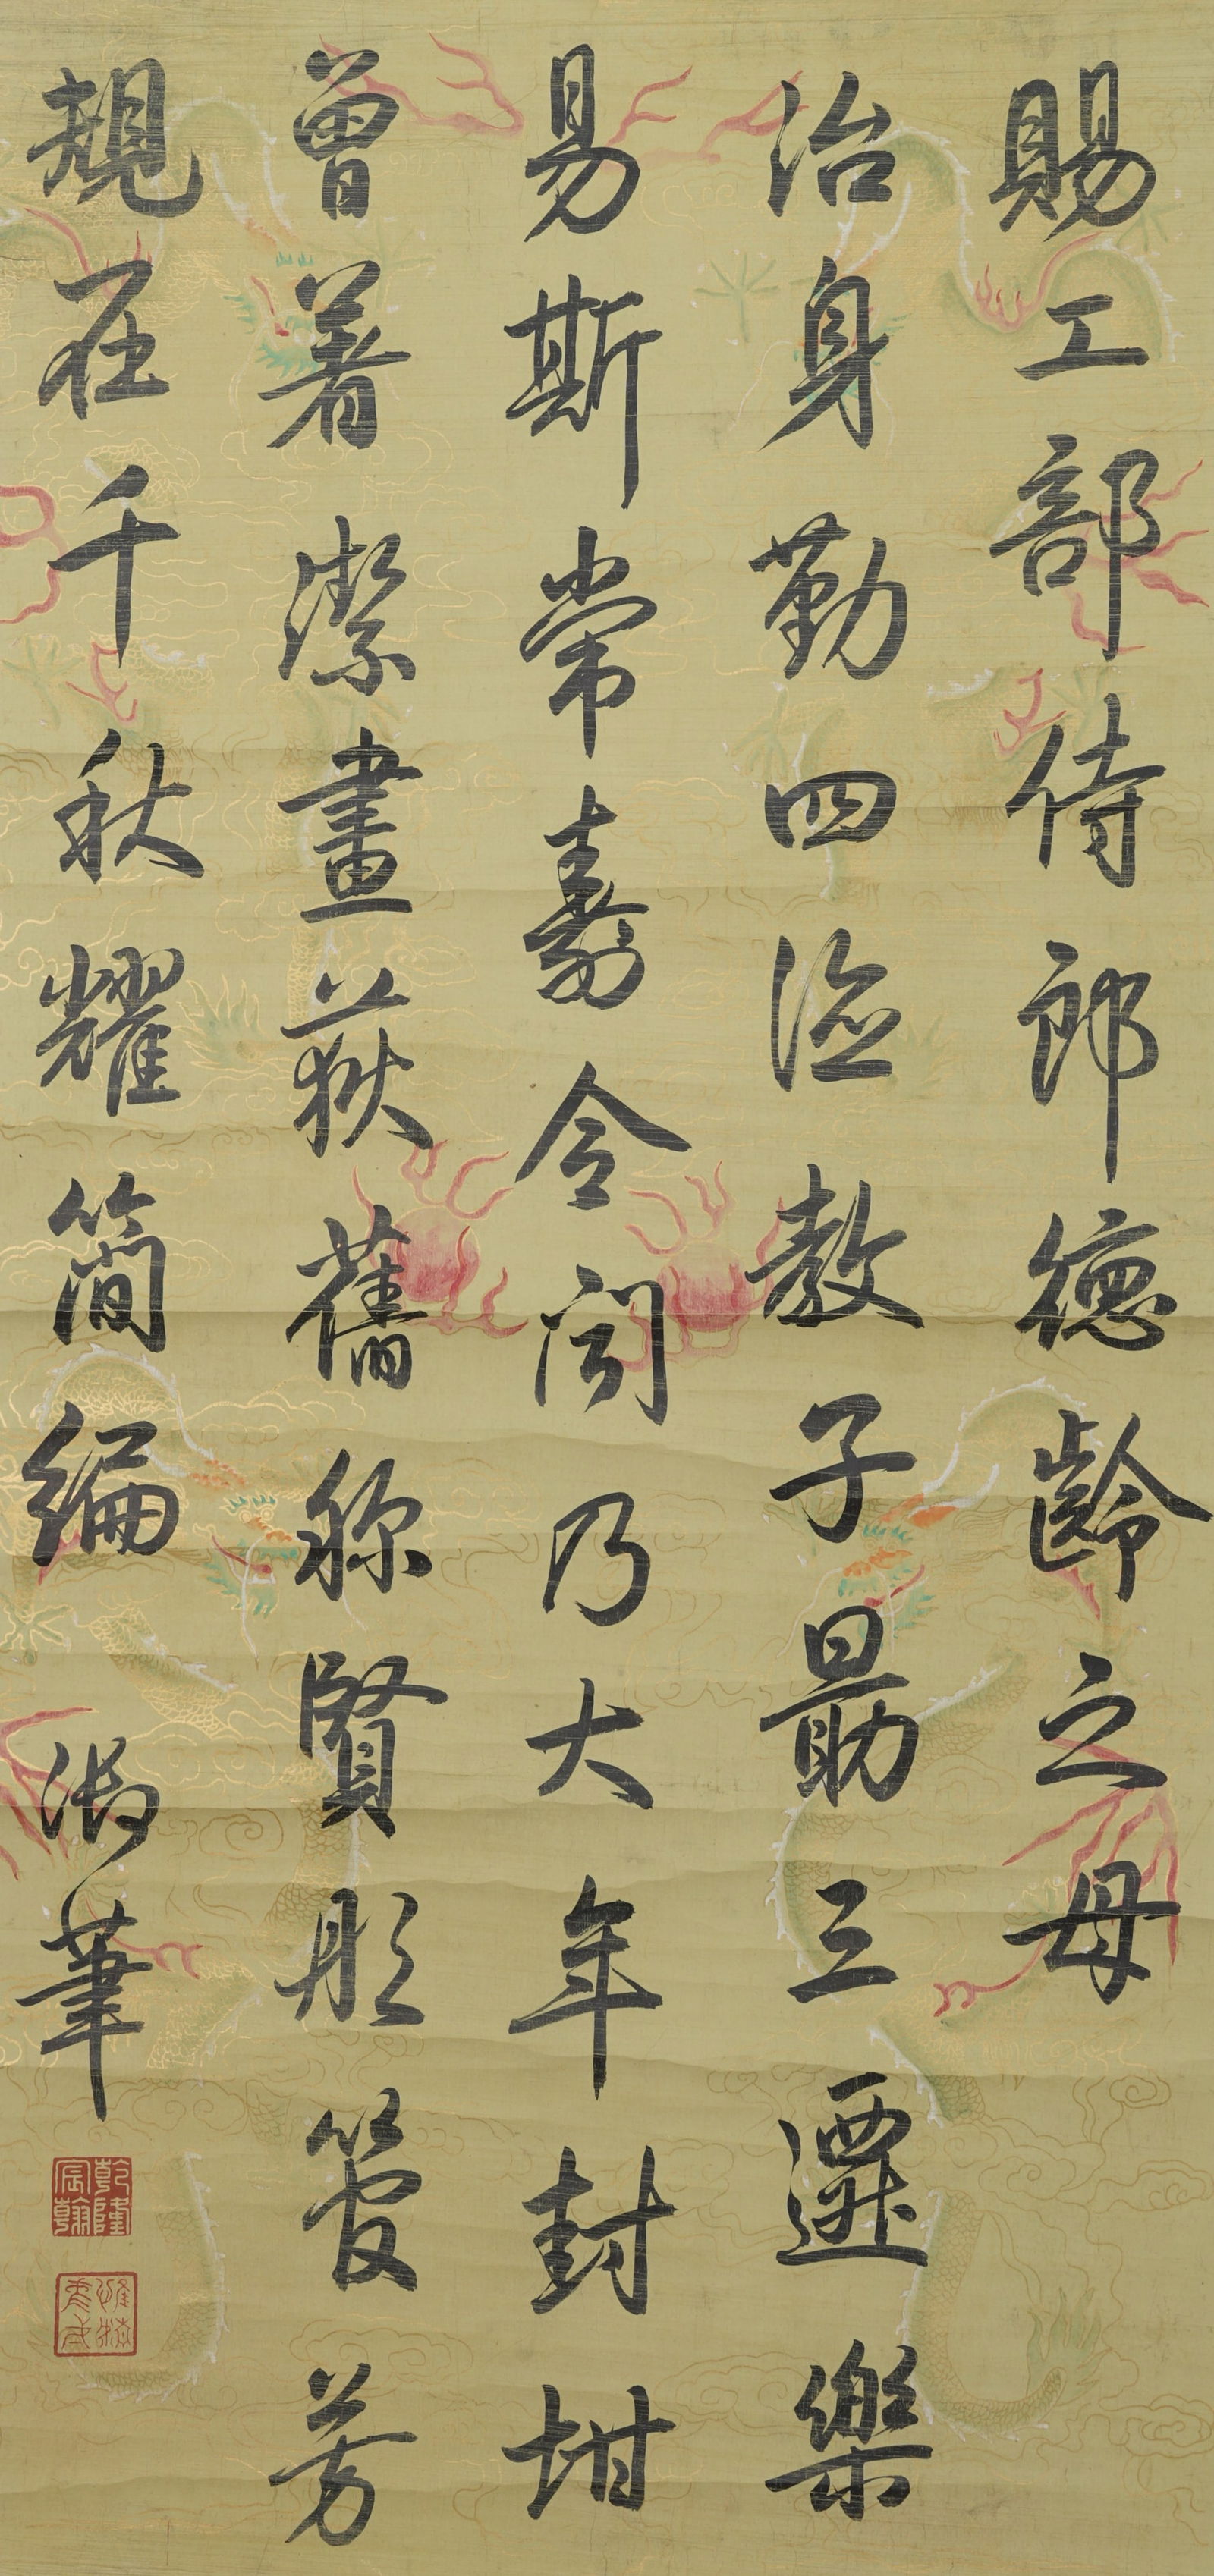 賜工部侍郎德齡之母
治身勤四德教子勗三遷樂
易斯常壽令聞乃大年封坩
曾著潔畫荻舊称賢彤管芳
規在千秋耀簡編 御筆
乾隆宸翰